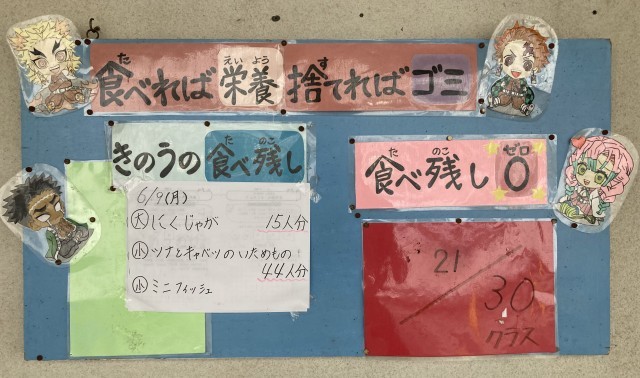 食べれば栄養 捨てればゴミ
きのうの食べ残し
6/9(月)
大 にくじゃが 15人分
小 ツナとキャベツのいためもの
44人分
小 ミニフィッシュ
食べ残し0
21/30
クラス